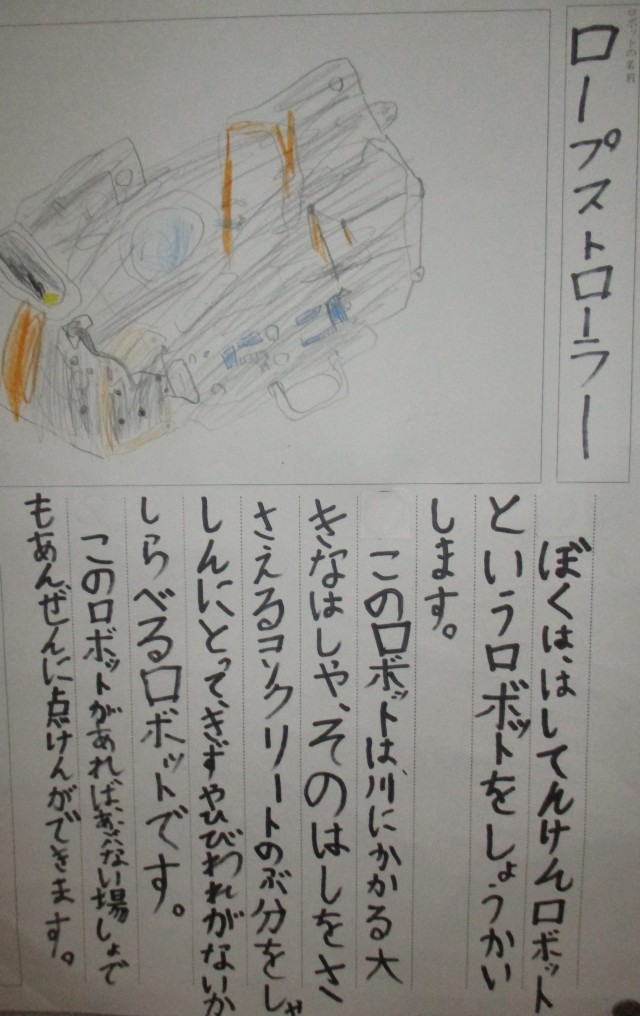 ロボットの名前
ロープストローラー
ぼくは、はしてんけんロボット
というロボットをしょうかい
します。
このロボットは、川にかかる大
きなはしや、そのはしをささ
さえるコンクリートのぶ分をしゃ
しんにとって、きずやひびわれがないか
しらべるロボットです。
このロボットがあれば、あぶない場しょで
もあんぜんに点けんができます。